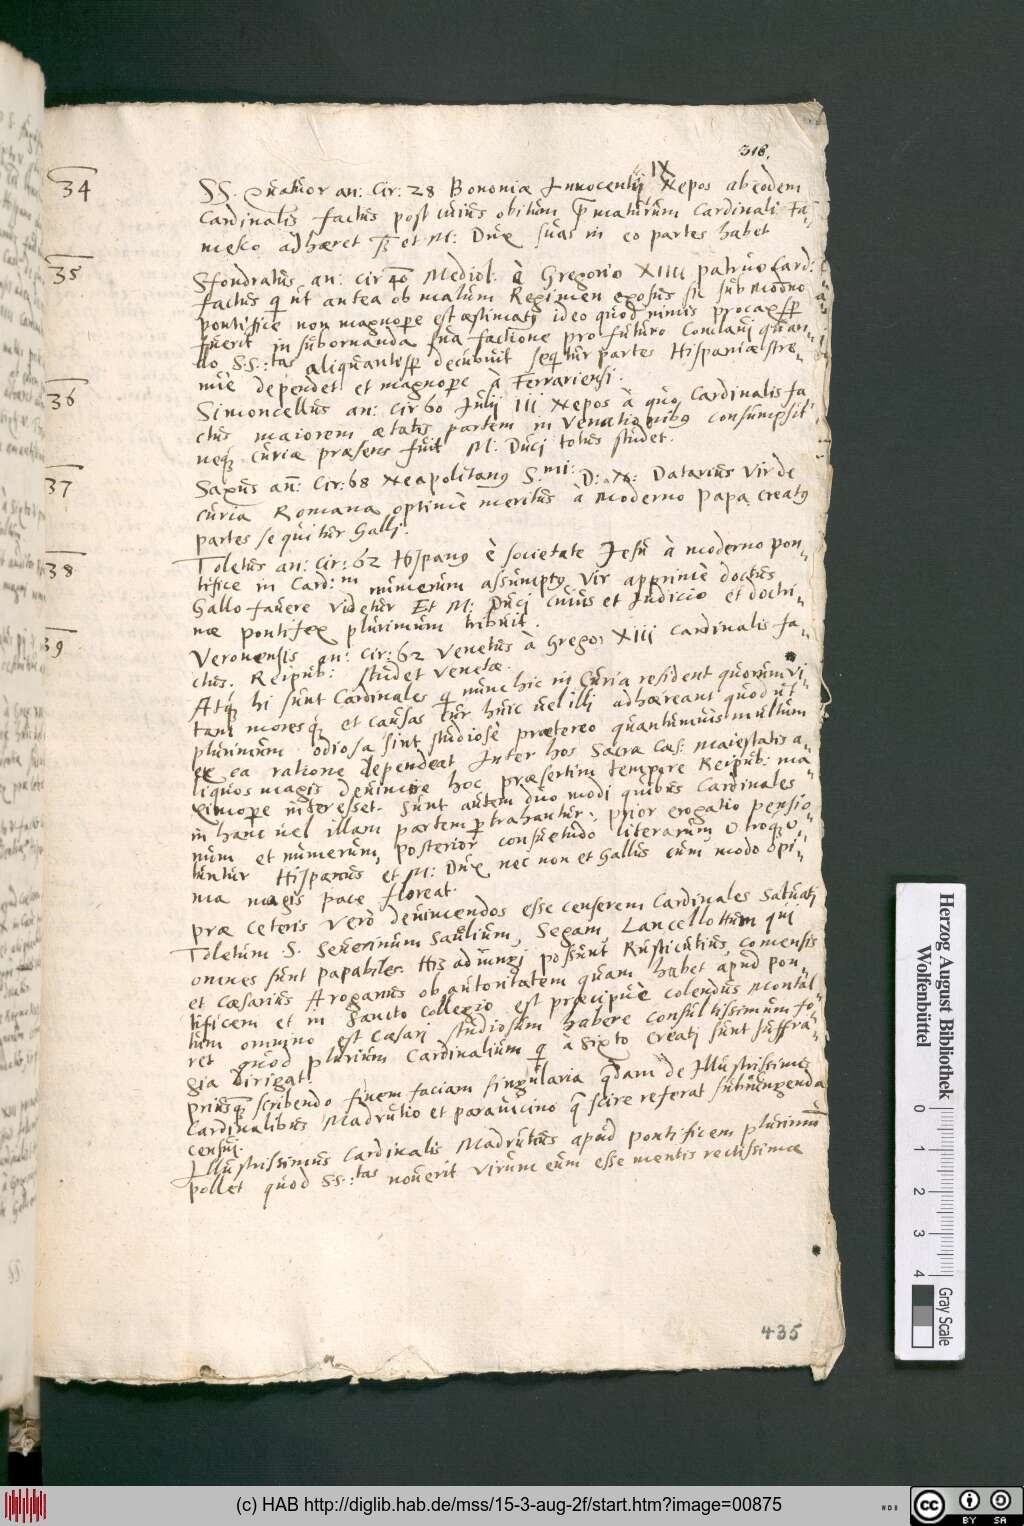 318.
34
SS. Quatuor an: Cir: 28 Bononiæ Innocentij IX Nepos ab eodem
Cardinalis factus post cuius obitum p̄maturum Cardinali Fa-
nesio adhæret Fs et M: Dux suas in eo partes habet
35
Sfondratus an: cir 40 Mediol. è Gregorio XIIII patruo Card:
factus q ut antea ob malum Regimen exosus sic sub Moderno
pontifice non magnopere est æstimatj ideo quod nimis procax
fuerit in subornanda sua factione pro futuro Conclavj quan-
do SS:tas aliquantisp decubuit sequitur partes Hispaniæ stre-
nuè dependet et magnope à Ferrariensi.
36
Simoncellus an: Cir 60 Julij III Nepos à quo Cardinalis fa
ctus maiorem ætatis partem in Venationibus consumpsit
neq curiæ præsens fuit M: Ducj totus studet.
37
Saxus an: Cir: 68 Neapolitanus S.mi: D: N: Datarius Vir de
curia Romana optimè meritus à Moderno Papa creatus
partes sequitur Gallj.
38
Toletus an: Cir: 62 Hispanus è societate Jesu à moderno pon-
tifice in Card:m numerum assumptus Vir apprimè doctus
Gallo favere videtur Et M: Ducj cuius et Judicio et doctri-
næ pontifex plurimum tribuit.
39
Veronensis an: Cir: 62 Venetus à Gregor XIII Cardinalis fa-
ctus. Reipub: studet Venetæ.
Atq hi sunt Cardinales q nunc hic in Curia resident quorum vi-
tam moresq et causas cur huic vel illi adhæreant quod ut
plurimum odiosa sint studiosè prætereo quantumuis multum
ex ea ratione dependeat Inter hos Sacra Cæs: Maiestatis a-
liquos magis devincire hoc præsertim tempore Reipub: ma
ximopere interesset. Sunt autem duo modi quibus Cardinales
in hanc vel illam partem ptrahantur: prior erogatio pensio
num et numerum, posterior consuetudo literarum, Utroq u-
tuntur Hispanus et M: Dux nec non et Gallus cum modo opi-
ma magis pace floreat.
præ ceteris verò devincendos esse censerem Cardinales Salviatj
Toletum S. Severinum Saulium, Segam, Lancellottum qui
omnes sunt papabiles. His adiungj possunt Rusticutius, Comensis
et Cæsarius Arogantis ob autoritatem quam habet apud pon-
tificem et in sancto Collegio est præcipuè colendus Montal
tum omnino est Cæsarj studiosum habere consultissimum fo-
ret quod plurium Cardinalium q à Sixto creatj sunt suffra-
gia dirigat.
priusq scribendo finem faciam singularia quædam de Illustrissimis
Cardinalibus Madrutio et paravicino q scire referat subiungenda
censuj.
Illustrissimus Cardinalis Madrutius apud pontificem plurimum
pollet quod SS:tas noverit virum eum esse mentis rectissimæ
435
Herzog August Bibliothek
Wolfenbüttel
0 1 2 3 4
Gray Scale
(c) HAB http://diglib.hab.de/mss/15-3-aug-2f/start.htm?image=00875
WDB
cc BY SA